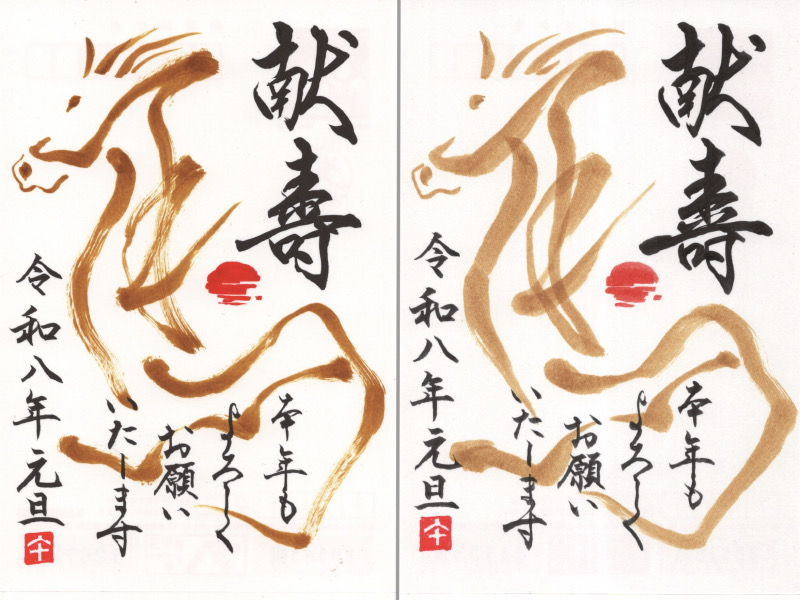 献寿
本年も
よろしく
お願い
いたします
令和八年元旦
献寿
本年も
よろしく
お願い
いたします
令和八年元旦